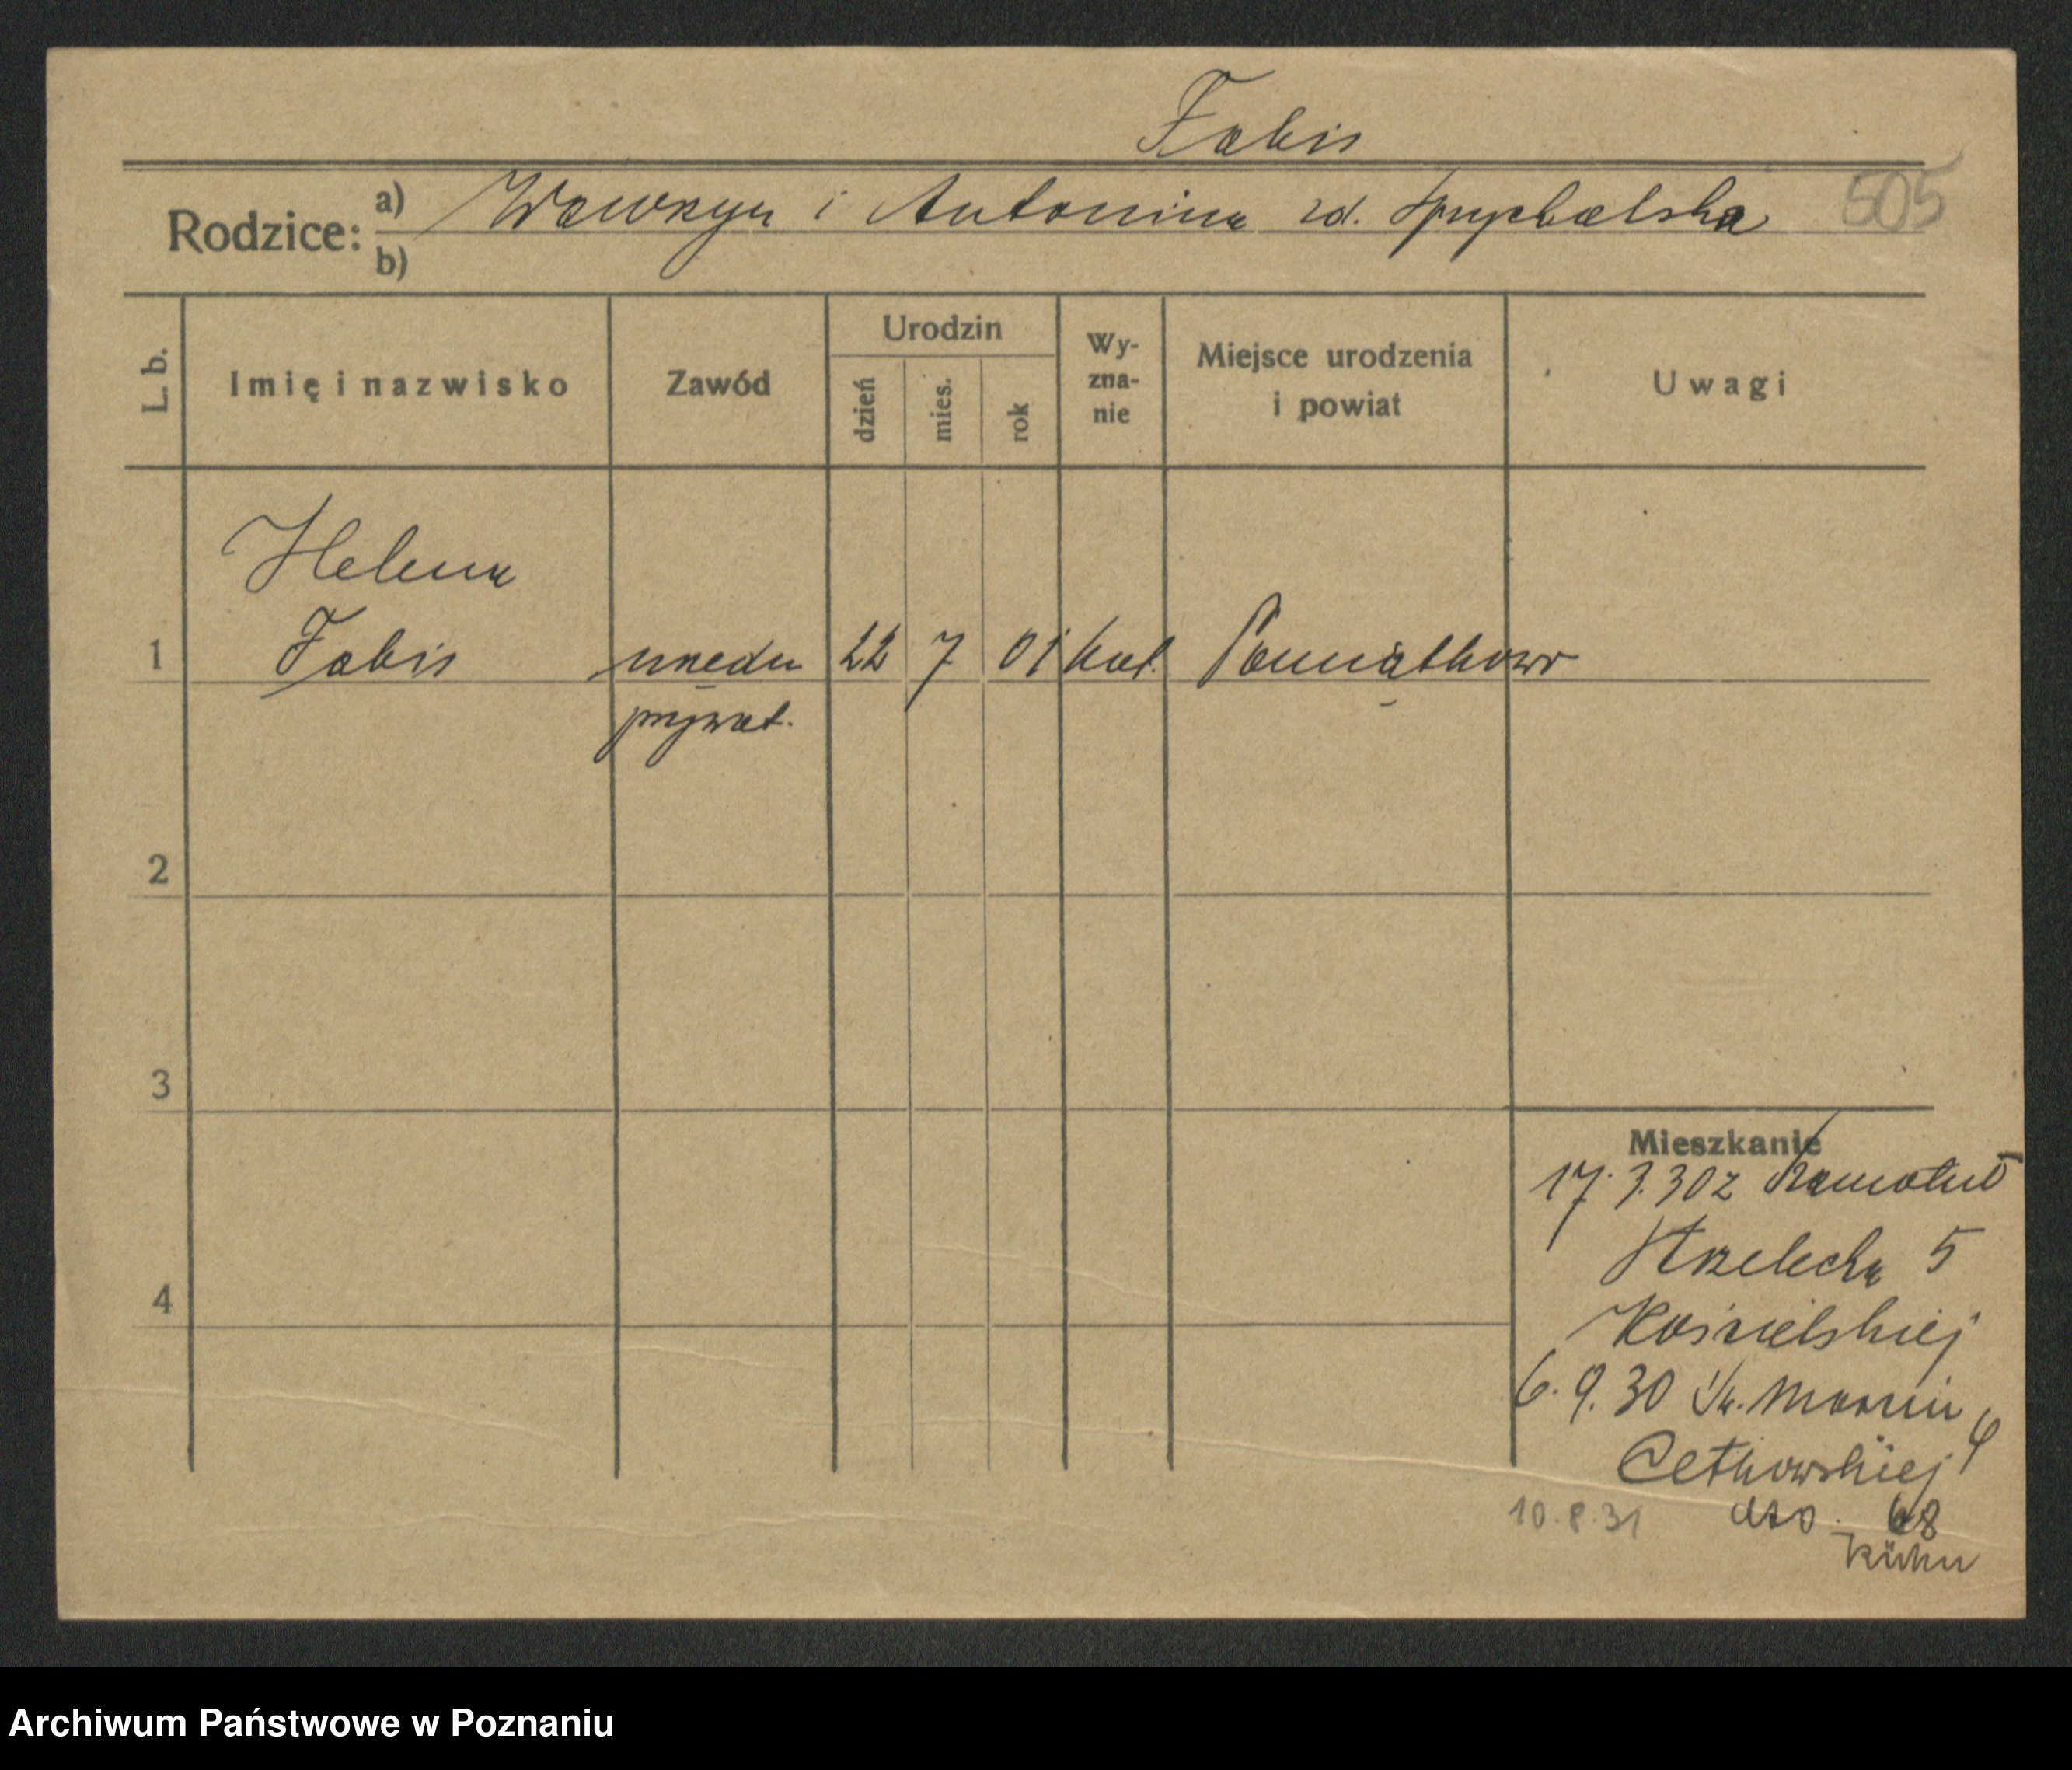 Fabis
Rodzice: a) Wawrzyn i Antonina zd. Spychalska 505
b)
L. b. Imię i nazwisko Zawód Urodzin dzień mies. rok Wy-zna-nie Miejsce urodzenia i powiat Uwagi
Helena
1 Fabis urzędn 22 7 01 kat. Pamiątkowo
prywat.
2
3
Mieszkanie
17.3.30 z Szamotuł
Strzelecka 5
4
Kościelskiej
6.9.30 Św. Marcin
Cetkowskiej
10.8.31 dto. 68
Kühn
Archiwum Państwowe w Poznaniu